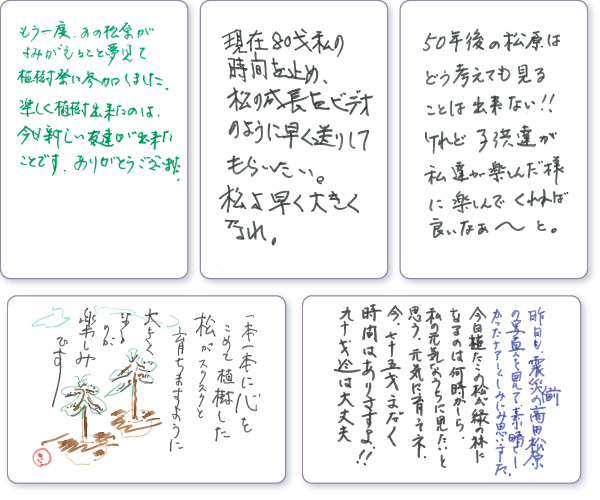 もう一度、あの松原が
よみがえることを夢見て
植樹祭に参加しました。
楽しく植樹出来たのは、
今日新しい友達が出来た
ことです。ありがとうございます。
現在80才私の
時間を止め、
松の成長をビデオ
のように早く送りして
もらいたい。
松よ早く大きく
なれ。
50年後の松原は
どう考えても見る
ことは出来ない!!
けれど子供達が
私達が楽しんだ様
に楽しんでくれれば
良いなぁ〜と。
一本一本に心を
こめて植樹した
松がスクスクと
育ちますように
大きく
なるのが
楽しみ
です
昨日も、震災前の高田松原
の写真を見て素晴らし
かったナァーとしみじみ思いました。
今日植えたこの松が緑の林に
なるのは何時かしら、
私の元気なうちに見たいと
思う、元気に育ってネ、
今、七十五才まだまだ
時間はありますよ!!
九十才迄は大丈夫